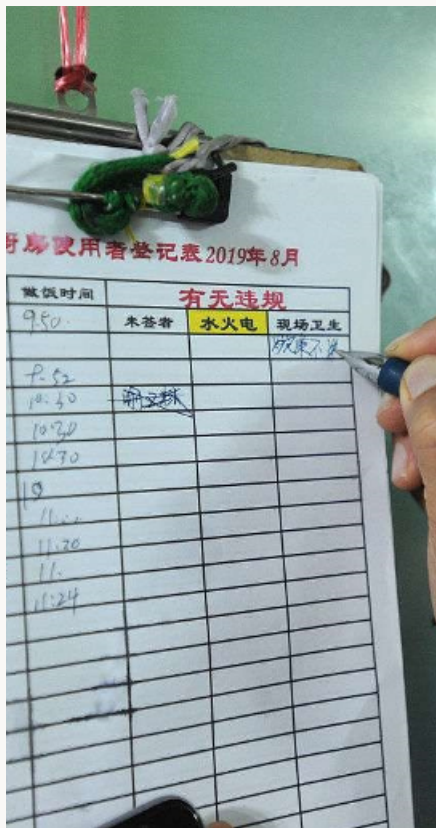 厨房使用者登记表2019年8月
做饭时间 有无违规
9.50. 未签者 水火电 现场卫生
9-52
10:30
10:30
10:30
10
11.20
11.
11:24